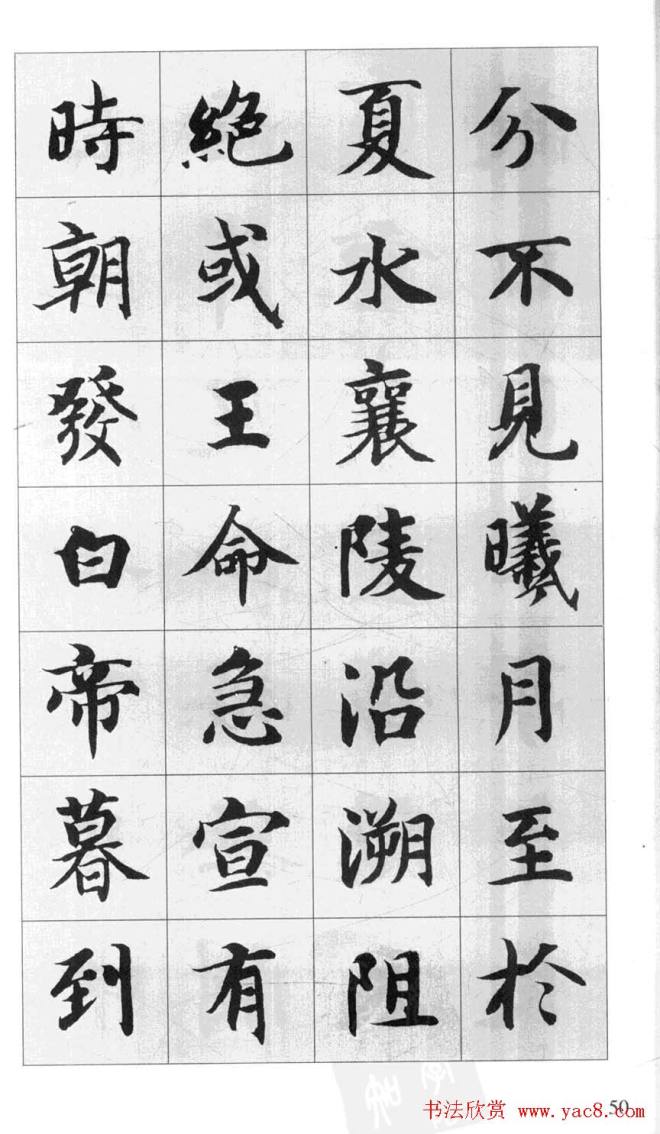 分不見曦月至於
夏水襄陵沿溯阻
絕或王命急宣有
時朝發白帝暮到
50
书法欣赏 www.yac8.com